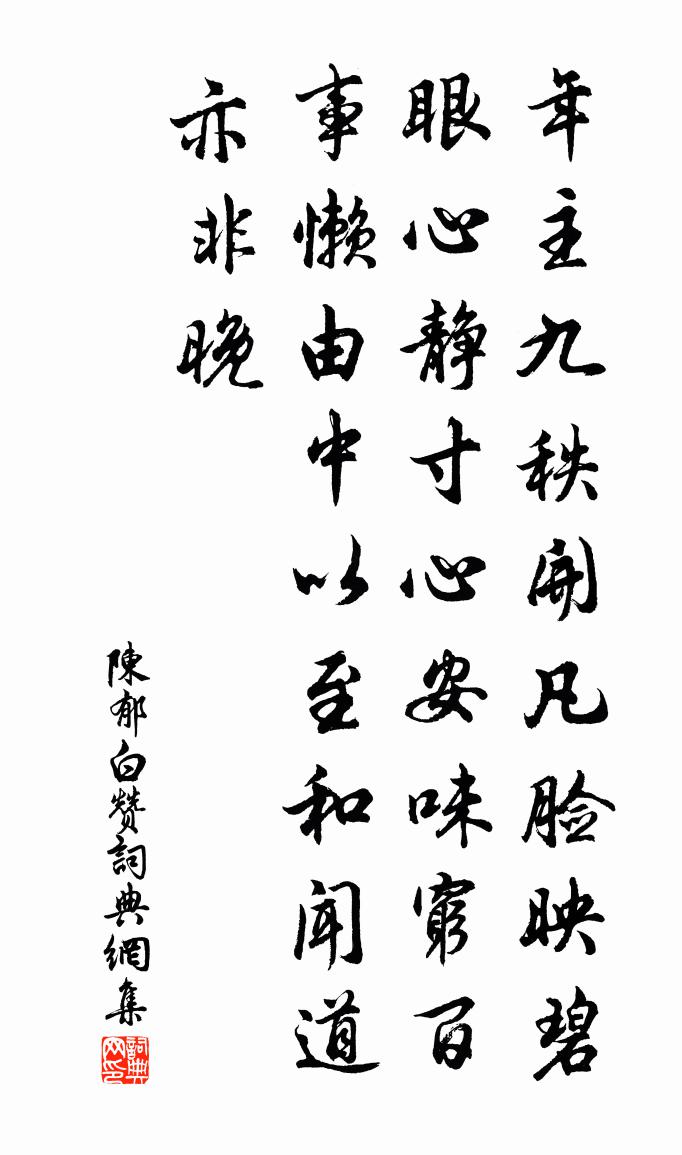 年主九秩開凡脸映碧
眼心静寸心安味窮百
事懒由中以至和闻道
亦非晚
陳郁白赞詞典網集
詞典网印